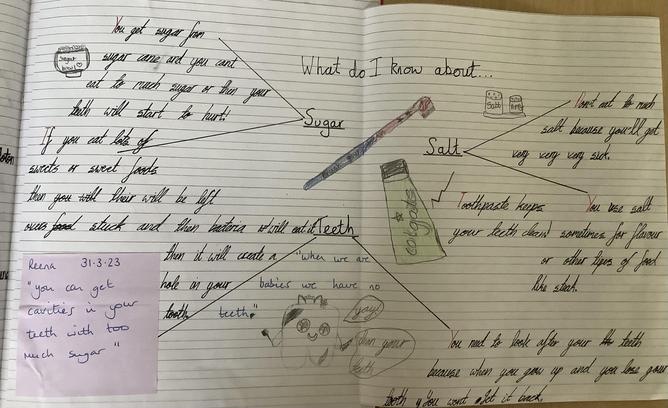 What do I know about...
You get sugar from
sugar cane and you cant
eat to much sugar or then your
teeth will start to hurt!
Sugar
bowl
Sugar
If you eat lots of
sweets or sweet foods
then you will their will be left
overs food stuck and then bacteria will eat it
then it will create a
hole in your
tooth
Teeth
"when we are
babies we have no
teeth."
Reena 31-3-23
"you can get
cavities in your
teeth with too
much sugar"
yay!
clean your
teeth
colgate
Salt
Salt
Dont eat to much
salt because you'll get
very very very sick.
Toothpaste keeps
your teeth clean!
You use salt
sometimes for flavour
or other types of food
like steak.
You need to look after your teeth
because when you grow up and you lose your
tooth You wont get it back.